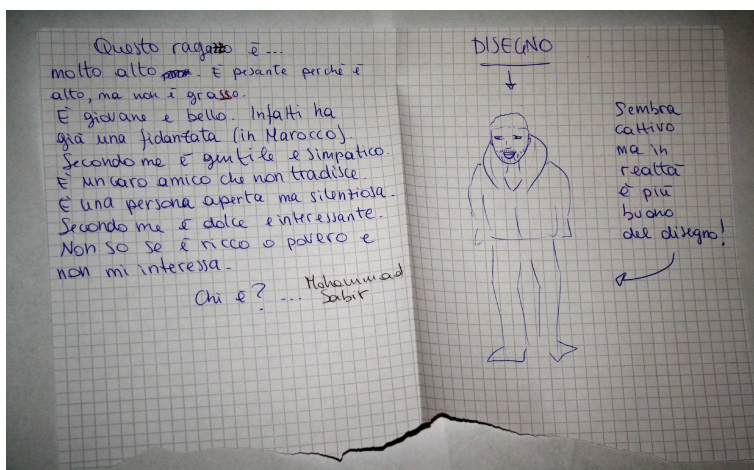 Questo ragazzo è...
molto alto. È pesante perché è
alto, ma non è grasso.
È giovane e bello. Infatti ha
già una fidanzata (in Marocco).
Secondo me è gentile e simpatico.
È un caro amico che non tradisce.
È una persona aperta ma silenziosa.
Secondo me è dolce e interessante.
Non so se è ricco o povero e
non mi interessa.
Chi è? ... Mohammad
Sabir
DISEGNO
Sembra
cattivo
ma in
realtà
è più
buono
del disegno!